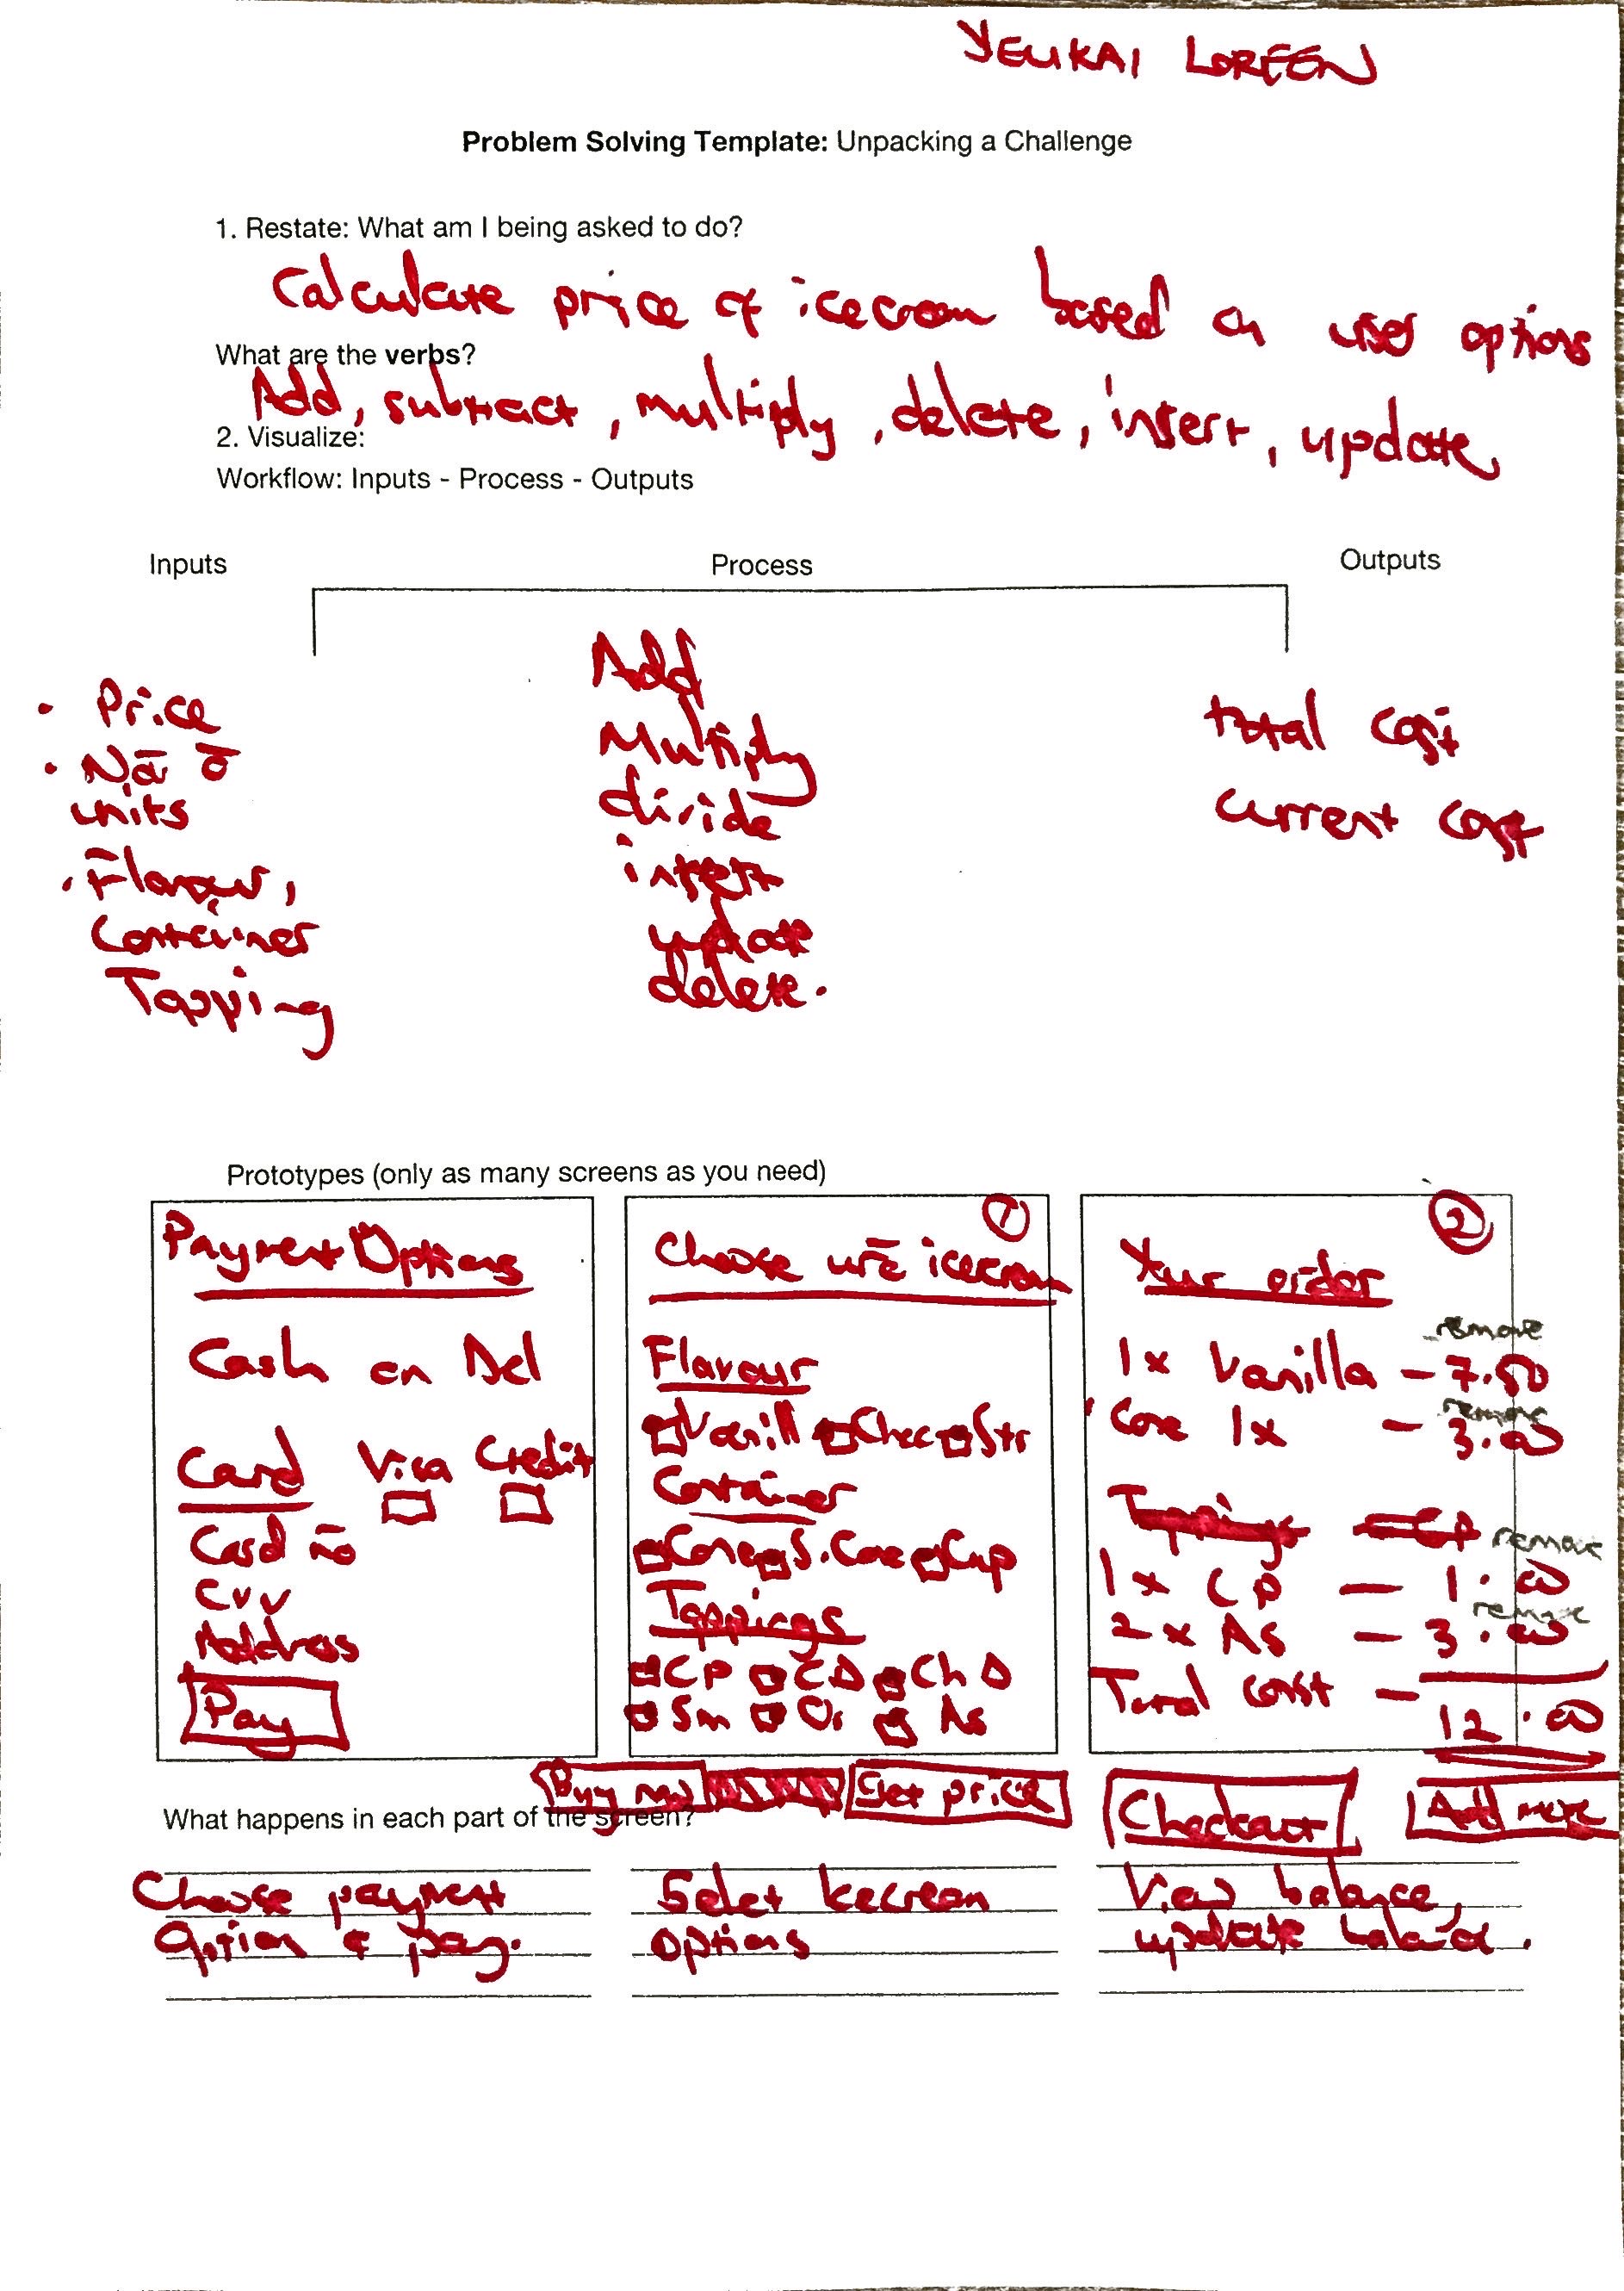 YEUKAI LOREEN
Problem Solving Template: Unpacking a Challenge
1. Restate: What am I being asked to do?
Calculate price of icecream based on user options
What are the verbs?
Add, subtract, multiply, delete, insert, update
2. Visualize:
Workflow: Inputs - Process - Outputs
Inputs
Process
Outputs
• Price
• Nā ō
units
• Flavour,
Container
Topping
Add
Multiply
divide
insert
update
delete.
total cost
current cost
Prototypes (only as many screens as you need)
Payment Options
Cash on Del
Card Visa Credit
Card no
CVV
Address
Pay
1
Choose icecream
Flavour
Vanill Choc Str
Container
Cone S.Cone Cup
Toppings
CP CD Ch D
Sm Or As
Buy now Get price
2
Your order
remove
1x Vanilla - 7.50
remove
Cone 1x - 3.00
Toppings
remove
1x CP - 1.00
remove
2x AS - 3.00
Total cost - 12.00
Checkout Add more
What happens in each part of the screen?
Choose payment
option & pay.
Select Icecream
options
View balance,
update